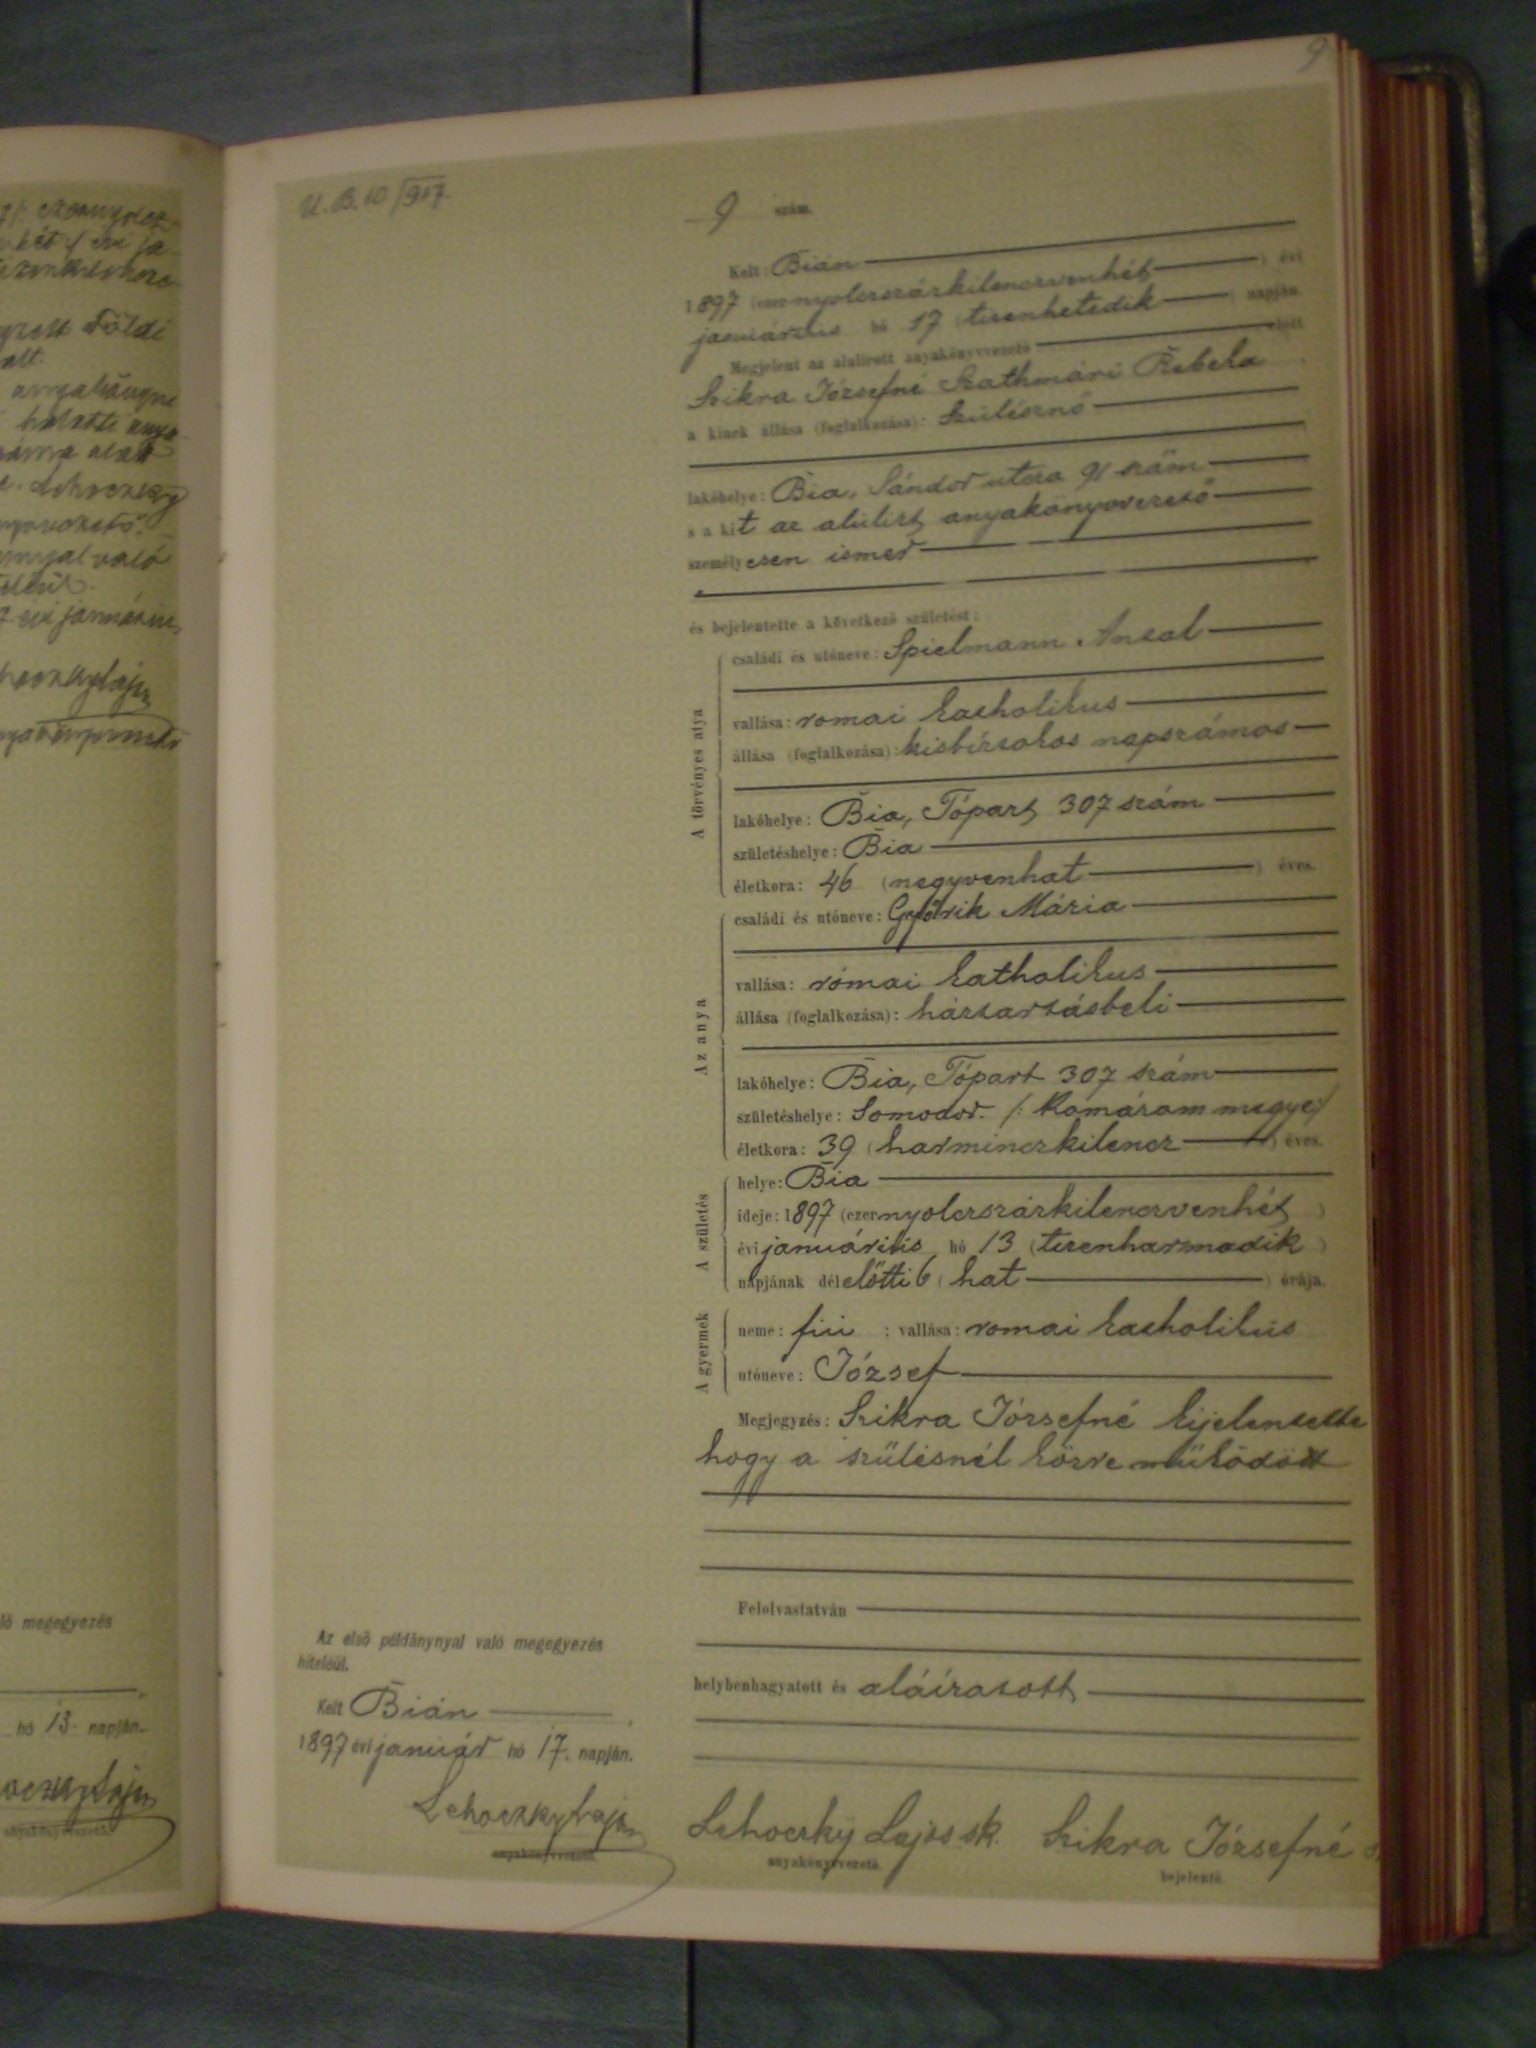 9
U. B. 10/917.
9 szám.
Kelt: Bián
1897 (ezernyolczszázkilenczvenhét) évi
januárius hó 17 (tizenhetedik) napján.
Megjelent az alulirott anyakönyvvezető előtt
Szikra Józsefné Szathmári Rebeka
a kinek állása (foglalkozása): Szülésznő
lakóhelye: Bia, Sándor utcza 91 szám
s a kit az alulirt anyakönyvvezető
személyesen ismer
és bejelentette a következő születést:
A törvényes atya
családi és utóneve: Spielmann Antal
vallása: romai katholikus
állása (foglalkozása): kisbirtokos napszámos
lakóhelye: Bia, Tópart 307 szám
születéshelye: Bia
életkora: 46 (negyvenhat) éves.
Az anya
családi és utóneve: Győrik Mária
vallása: római katholikus
állása (foglalkozása): háztartásbeli
lakóhelye: Bia, Tópart 307 szám
születéshelye: Somodor /: Komárom megye/
életkora: 39 (harminczkilencz) éves.
A születés
helye: Bia
ideje: 1897 (ezernyolczszázkilenczvenhét)
évi januárius hó 13 (tizenharmadik)
napjának délelőtti 6 (hat) órája.
A gyermek
neme: fiu ; vallása: romai katholikus
utóneve: József
Megjegyzés: Szikra Józsefné kijelentette
hogy a szülésnél közre működött
Felolvastatván
helybenhagyatott és aláíratott
Az első példánynyal való megegyezés
hiteléül.
Kelt Bián
1897 évi január hó 17. napján.
Lehoczky Lajos
anyakönyvvezető.
Lehoczky Lajos sk. Szikra Józsefné
anyakönyvvezető. bejelentő.
megegyezés
hó 13. napján.
anyakönyvvezető.